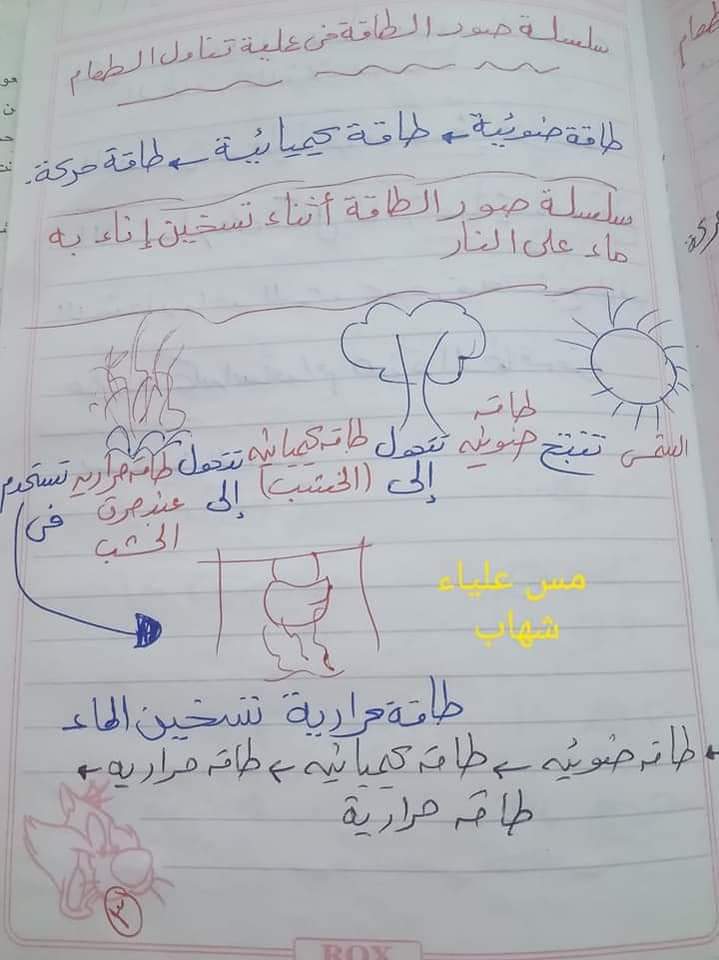 سلسلة صور الطاقة فى علية تناول الطعام
طاقة ضوئية ← طاقة كيميائية ← طاقة حركة.
سلسلة صور الطاقة أثناء تسخين إناء به
ماء على النار
الشمس تنتج طاقه ضوئيه تتحول إلى طاقه كيميائيه (الخشب) تتحول إلى طاقه حراريه عند حرق الخشب تستخدم فى
مس علياء
شهاب
طاقة حرارية تسخين الماء
← طاقه ضوئيه ← طاقه كيميائيه ← طاقه حراريه ←
طاقه حرارية
٣
ROX